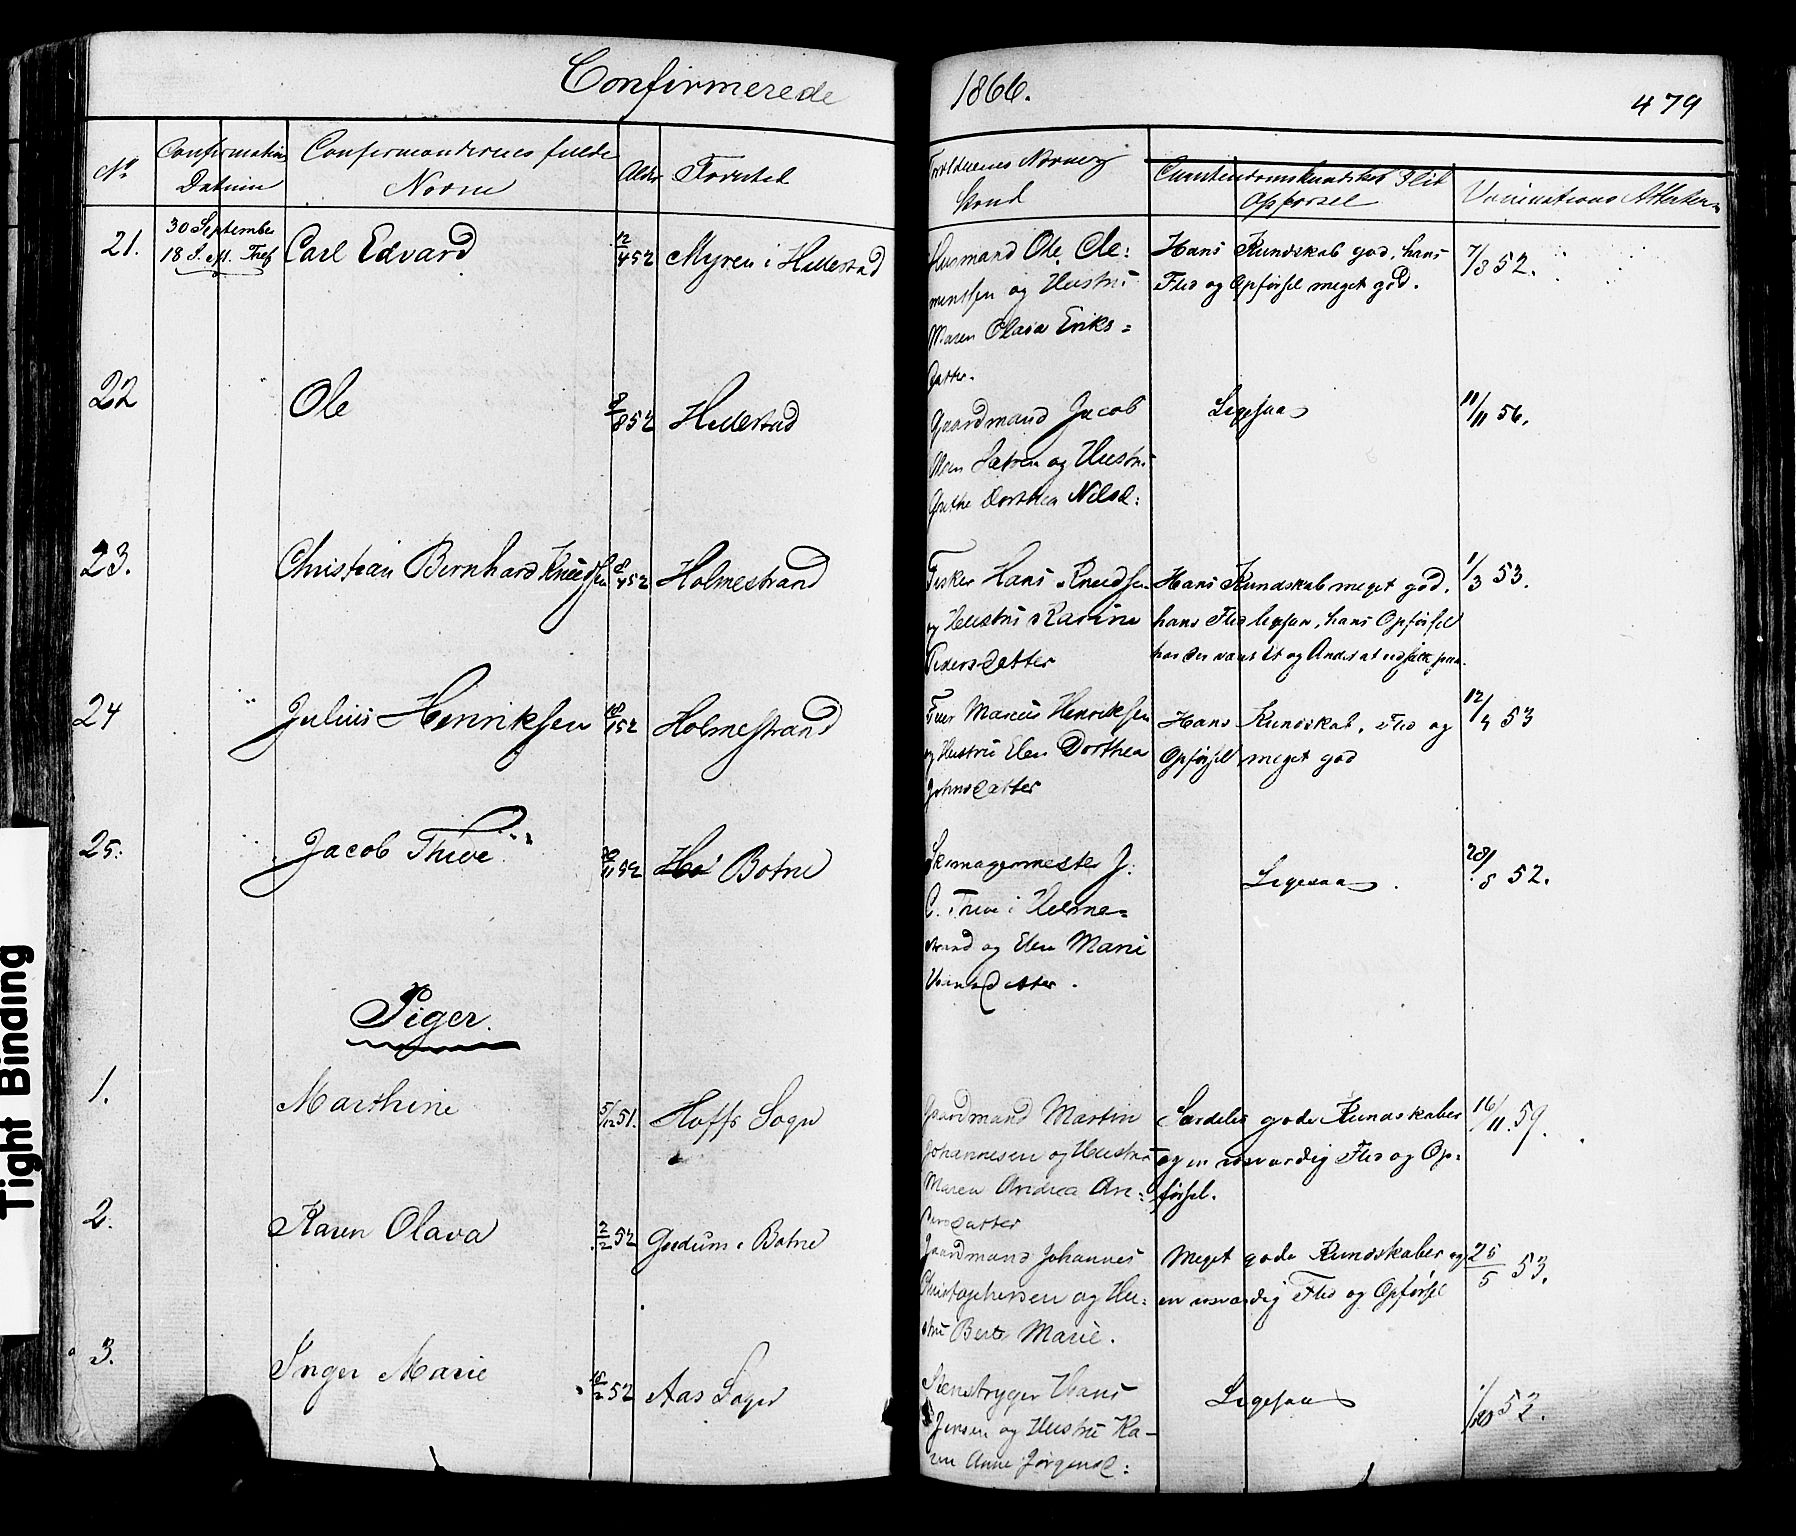 Confirmerede 1866. 479
No Confirmations Datum Confirmandernes fulde Navne Alder Fødested Forældrenes Navne og Stand Christendomskundskab Flid Opførsel Vaccinations Attester
30 September
18 S. e. Tref
21. Carl Edvard 12/4 52 Myren i Hillestad
Husmand Ole Cle=
mentsen og Hustru
Maren Olava Eriks=
datter.
Hans Kundskab god, hans
Flid og Opførsel meget god.
7/3 52.
22 Ole 9/8 52 Hillestad
Gaardmand Jacob
og Hustru
Grethe Dorthea Nilsd:
Ligesaa
11/11 56.
23. Christian Bernhard Knudsen 8/4 52 Holmestrand
Fisker Hans Knudsen
og Hustru Karine
Pedersdatter
Hans Kundskab meget god,
hans Flid ligesaa, hans Opførsel
har der været Et og Andet at udsætte paa.
1/3 53.
24 Julius Henriksen 52 Holmestrand
Marcus Henriksen
og Hustru Elen Dorthea
Johnsdatter
Hans Kundskab, Flid og
Opførsel meget god
12/4 53
25. Jacob Thive 52 Botne
Skomagermester J.
C. Thive i Holme=
strand og Elen Marie
datter.
Ligesaa
28/8 52.
Piger.
1. Marthine 5/12 51. Hoffs Sogn
Gaardmand Martin
Johannesen og Hustru
Maren Andrea An=
dersdatter
Særdeles gode Kundskaber
og en rosværdig Flid og Op=
førsel.
16/11. 59.
2. Karen Olava 2/2 52 Gudum i Botne
Gaardmand Johannes
Christophersen og Hu=
stru Berte Marie.
Meget gode Kundskaber og
en rosværdig Flid og Opførsel
25/5 53.
3. Inger Marie 52 Aas Sogn
Hans
Jensen og Hustru Ka-
ren Anne Jørgensd:
Ligesaa
53.
Tight Binding